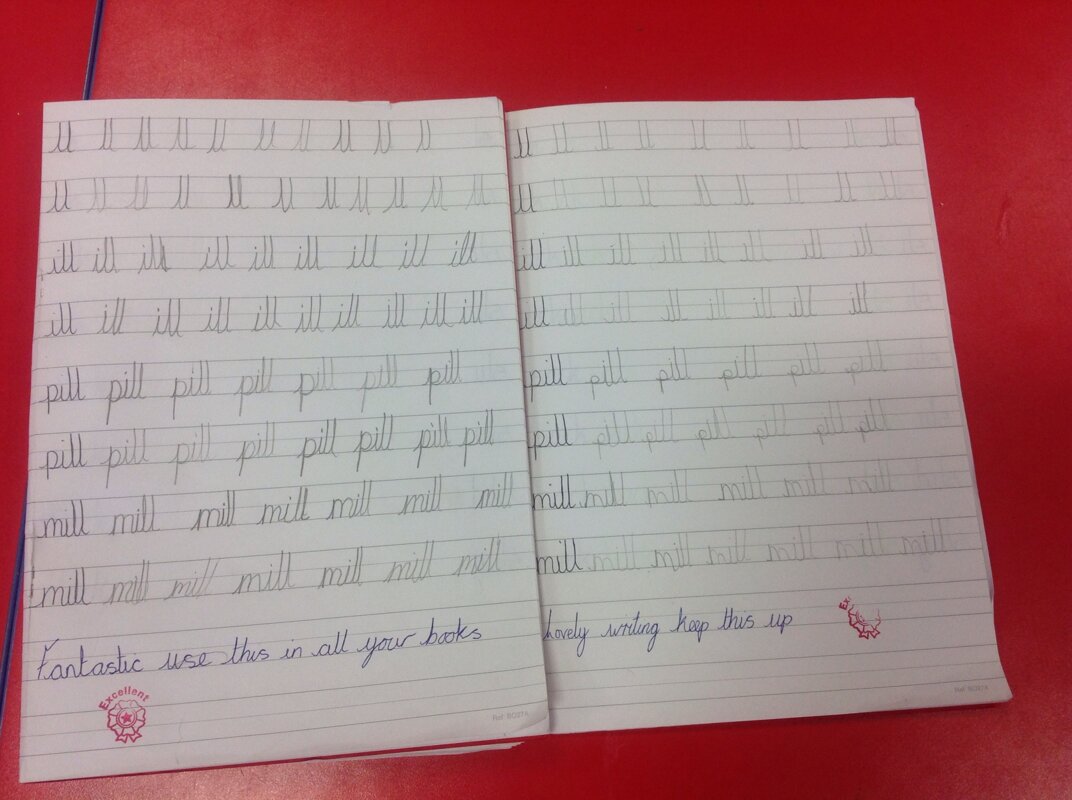 ll ll ll ll ll ll ll ll ll ll
ll ll ll ll ll ll ll ll ll ll ll
ill ill ill ill ill ill ill ill ill
ill ill ill ill ill ill ill ill ill ill
pill pill pill pill pill pill pill
pill pill pill pill pill pill pill pill
mill mill mill mill mill mill mill
mill mill mill mill mill mill mill
Fantastic use this in all your books
Excellent
Ref: BO27A
ll ll ll ll ll ll ll ll ll
ll ll ll ll ll ll ll ll ll
ill ill ill ill ill ill ill ill
ill ill ill ill ill ill ill ill
pill pill pill pill pill pill
pill pill pill pill pill pill pill
mill mill mill mill mill mill
mill mill mill mill mill mill mill
Lovely writing keep this up
Ex
Ref: BO27A